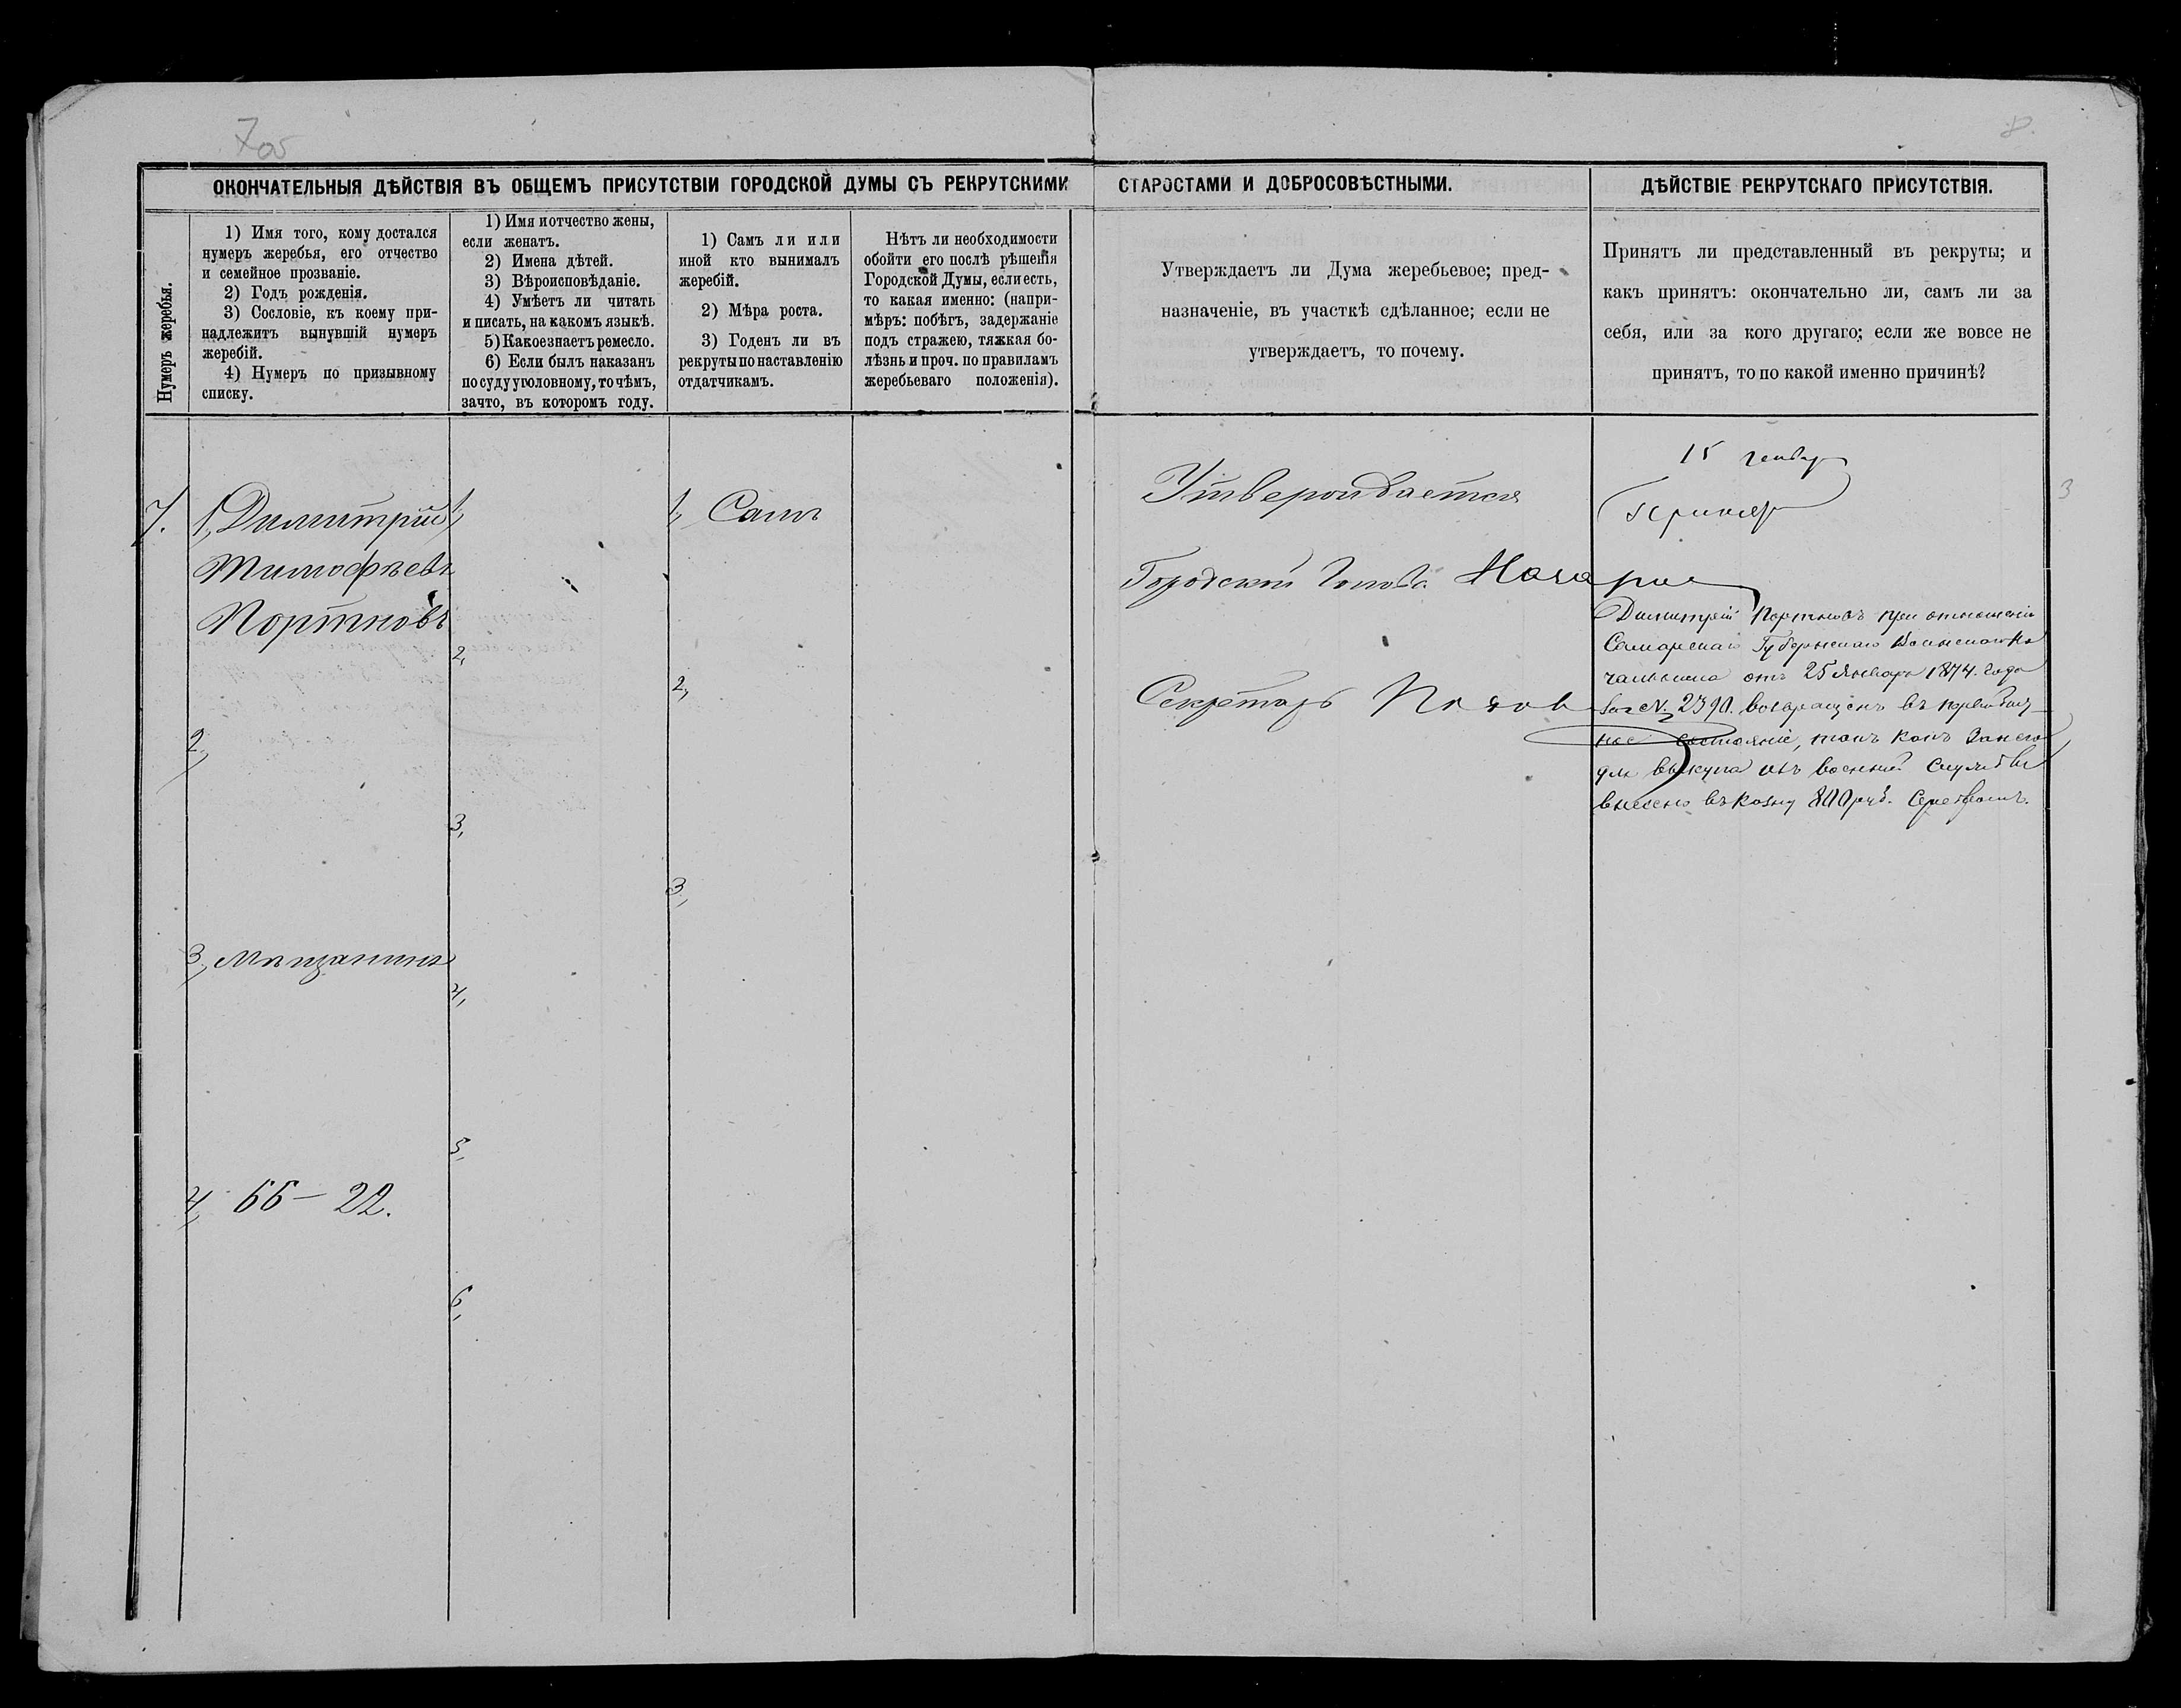 7об
8.
ОКОНЧАТЕЛЬНЫЯ ДѢЙСТВІЯ ВЪ ОБЩЕМЪ ПРИСУТСТВІИ ГОРОДСКОЙ ДУМЫ СЪ РЕКРУТСКИМИ СТАРОСТАМИ И ДОБРОСОВѢСТНЫМИ.
ДѢЙСТВІЕ РЕКРУТСКАГО ПРИСУТСТВІЯ.
Нумеръ жеребья.
1) Имя того, кому достался
нумеръ жеребья, его отчество
и семейное прозваніе.
2) Годъ рожденія.
3) Сословіе, къ коему при-
надлежитъ вынувшій нумеръ
жеребій.
4) Нумеръ по призывному
списку.
1) Имя и отчество жены,
если женатъ.
2) Имена дѣтей.
3) Вѣроисповѣданіе.
4) Умѣетъ ли читать
и писать, на какомъ языкѣ.
5) Какое знаетъ ремесло.
6) Если былъ наказанъ
по суду уголовному, то чѣмъ,
за что, въ которомъ году.
1) Самъ ли или
иной кто вынималъ
жеребій.
2) Мѣра роста.
3) Годенъ ли въ
рекруты по наставленію
отдатчикамъ.
Нѣтъ ли необходимости
обойти его послѣ рѣшенія
Городской Думы, если есть,
то какая именно: (напри-
мѣръ: побѣгъ, задержаніе
подъ стражею, тяжкая бо-
лѣзнь и проч. по правиламъ
жеребьеваго положенія).
Утверждаетъ ли Дума жеребьевое; пред-
назначеніе, въ участкѣ сдѣланное; если не
утверждаетъ, то почему.
Принятъ ли представленный въ рекруты; и
какъ принятъ: окончательно ли, самъ ли за
себя, или за кого другаго; если же вовсе не
принятъ, то по какой именно причинѣ?
7.
1, Димитрій
Тимофѣевъ
Портновъ
2,
3, Мѣщанинъ
4, 66 — 22.
1,
2,
3,
4,
5,
6,
1, Самъ
2,
3,
Утверждается
Городской Голова
Секретарь
15 генваря
Принятъ
Димитрій Портновъ при отношеніи
Самарскаго Губернскаго Воинскаго На
чальника отъ 25 Января 1874. года
за N. 2390. возвращенъ въ первобыт-
ное состояніе, такъ какъ за него
для выкупа отъ военной службы
внесено въ казну 800 руб. Серебромъ.
3